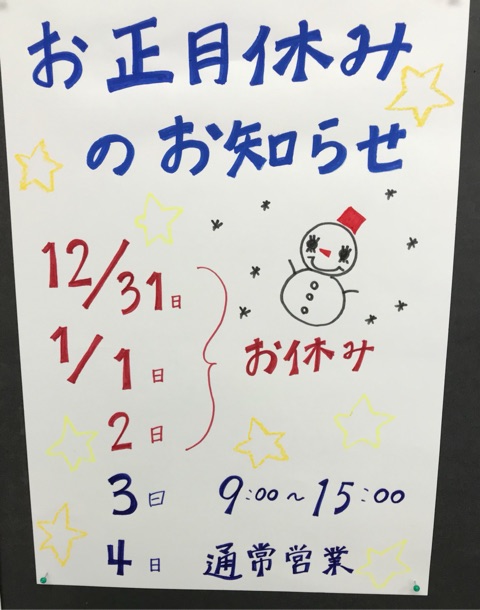 お正月休み
のお知らせ
12/31日
1/1日
お休み
2日
3日 9:00~15:00
4日 通常営業